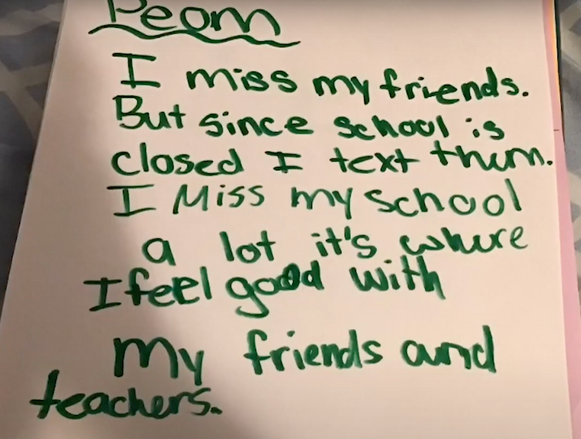 Peom
I miss my friends.
But since school is
closed I text them.
I Miss my school
a lot it's where
I feel good with
my friends and
teachers.